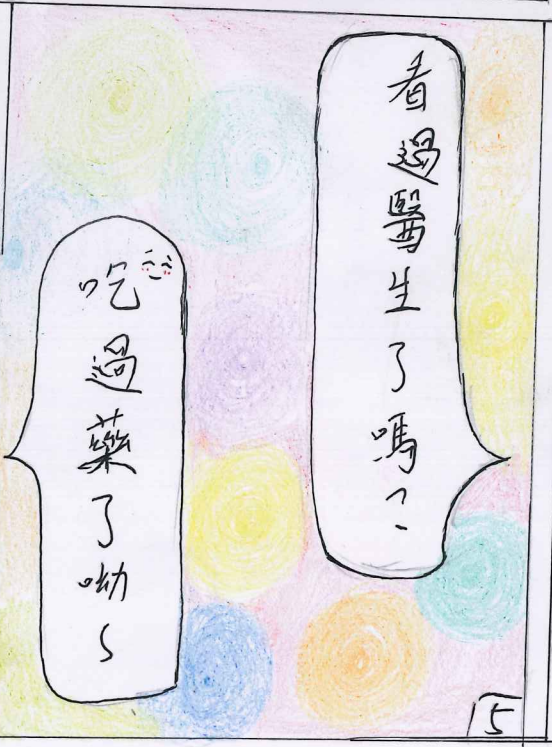 看過醫生了嗎？
吃過藥了呦～
5